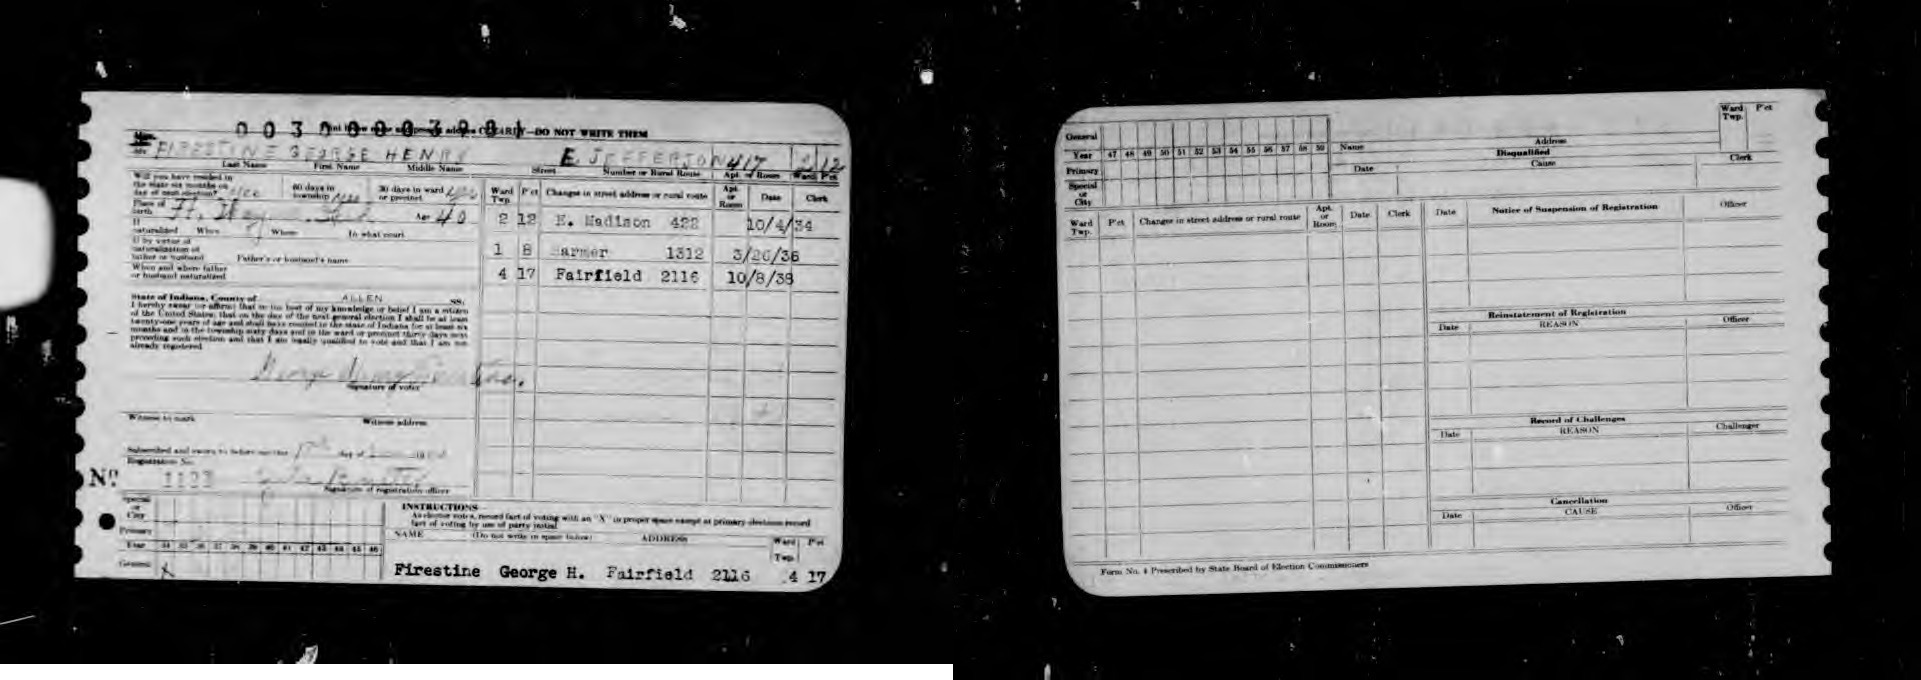 0030000
Print below name and present address CLEARLY—DO NOT WRITE THEM
FIRESTINE GEORGE HENRY E. JEFFERSON 417 2 12
Last Name First Name Middle Name Street Number or Rural Route Apt. or Room Ward Pct
Will you have resided in the state six months on day of next election? Yes 60 days in township Yes 30 days in ward or precinct Yes
Place of birth Ft. Way Ind Age 40
If naturalized When Where In what court
If by virtue of naturalization of father or husband Father's or husband's name
When and where father or husband naturalized
State of Indiana, County of ALLEN SS.
I hereby swear (or affirm) that to the best of my knowledge or belief I am a citizen
of the United States; that on the day of the next general election I shall be at least
twenty-one years of age and shall have resided in the state of Indiana for at least six
months and in the township sixty days and in the ward or precinct thirty days next
preceding such election and that I am legally qualified to vote and that I am not
already registered.
George Henry Firestine.
Signature of voter
Witness to mark Witness address
Subscribed and sworn to before me this day of
Registration No.
No. Signature of registration officer
Ward Twp. P'ct Changes in street address or rural route Apt. or Room Date Clerk
2 12 E. Madison 422 10/4/34
1 8 1312 3/26/36
4 17 Fairfield 2116 10/8/38
Special or City
Primary
Year 34 35 36 37 38 39 40 41 42 43 44 45 46
General X
INSTRUCTIONS
As elector votes, record fact of voting with an "X" in proper space except at primary elections record
fact of voting by use of party initial
NAME (Do not write in space below) ADDRESS Ward Twp. P'ct
Firestine George H. Fairfield 2116 4 17
General
Year 47 48 49 50 51 52 53 54 55 56 57 58 59
Primary
Special or City
Name Address Ward Twp. P'ct
Disqualified
Date Cause Clerk
Ward Twp. P'ct Changes in street address or rural route Apt. or Room Date Clerk
Date Notice of Suspension of Registration Officer
Reinstatement of Registration
Date REASON Officer
Record of Challenges
Date REASON Challenger
Cancellation
Date CAUSE Officer
Form No. 4 Prescribed by State Board of Election Commissioners